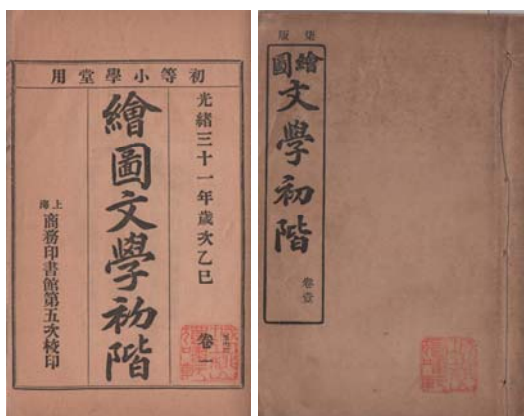 初等小學堂用
光緒三十一年歲次乙巳
繪圖文學初階
卷一
上海
商務印書館第五次校印
柒版
繪圖
文學初階
卷壹